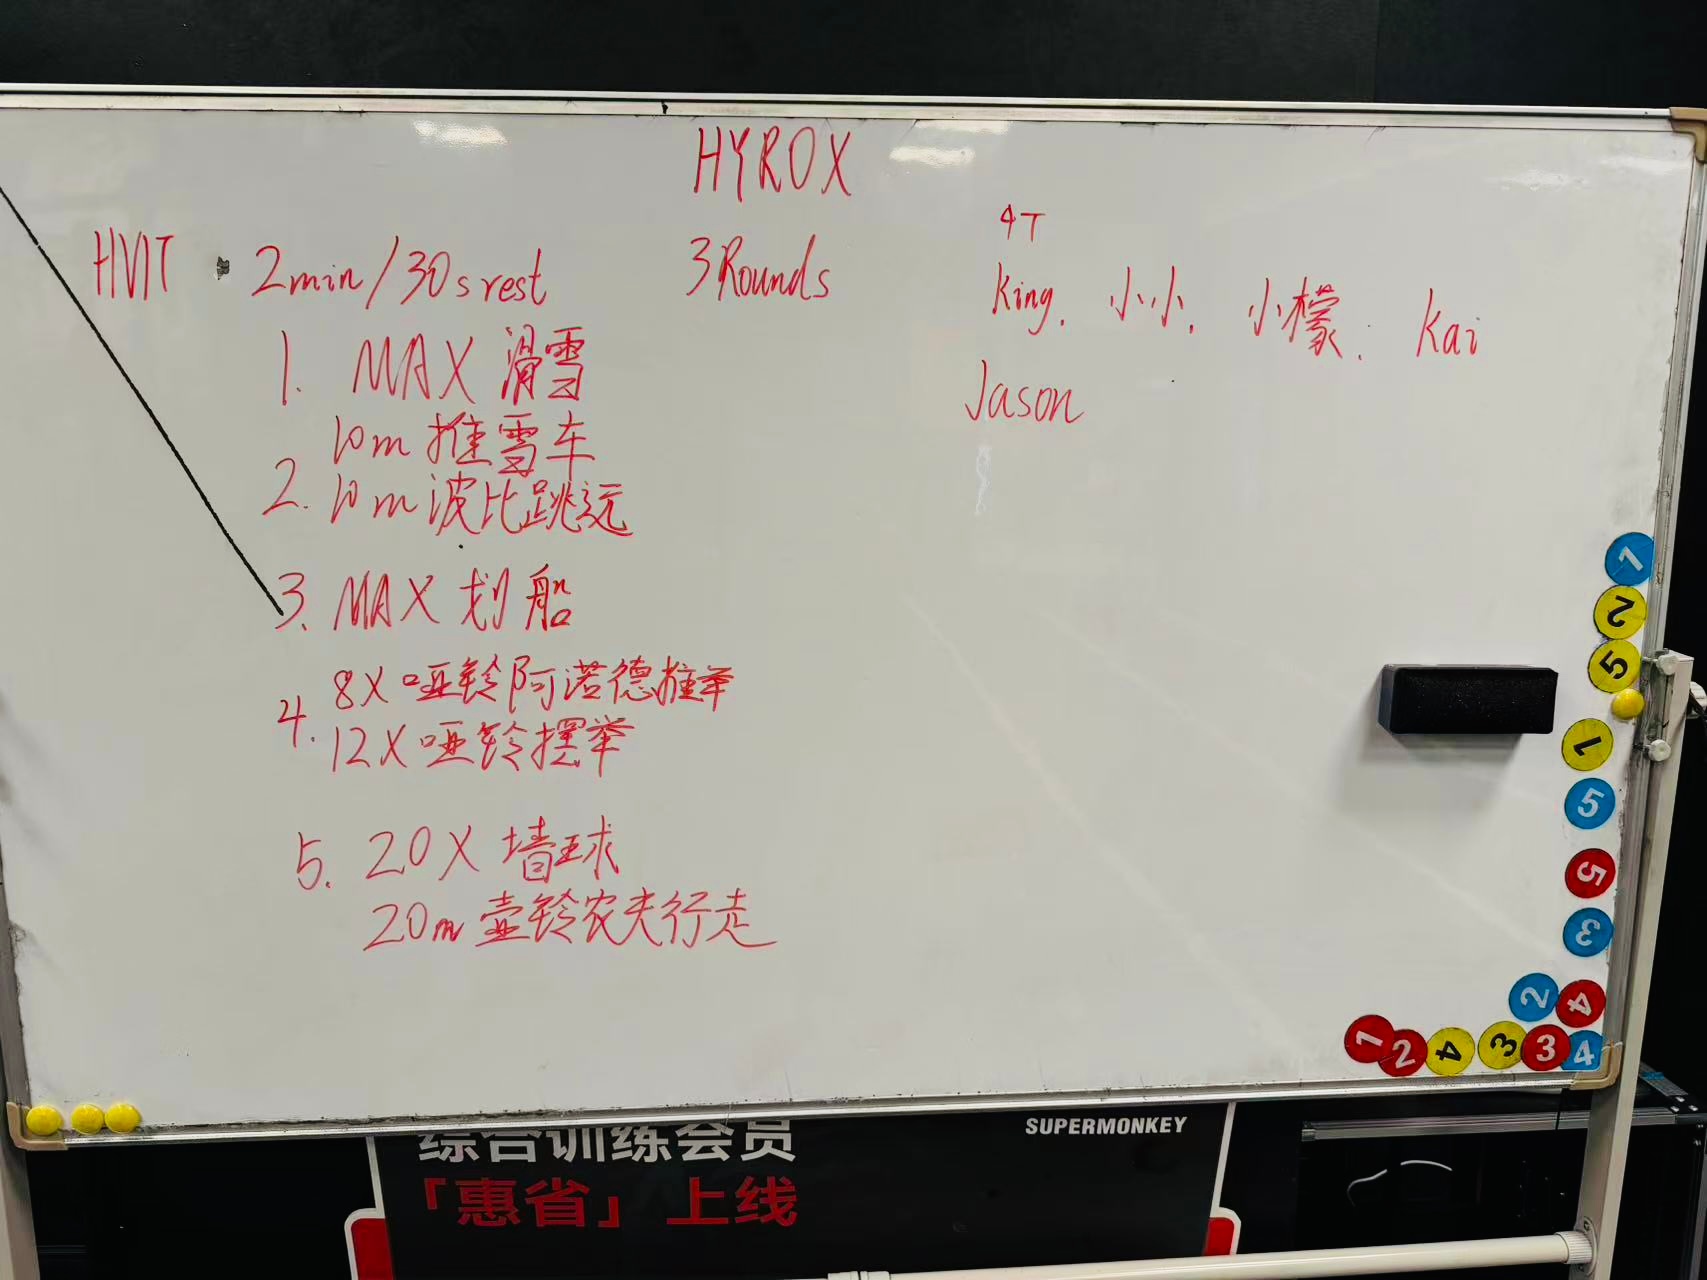 HYROX
HVIT 2min/30s rest 3Rounds
4T
King. 小小. 小檬. Kai
Jason
1. MAX 滑雪
10m 推雪车
2. 10m 波比跳远
3. MAX 划船
4. 8X 哑铃阿诺德推举
12X 哑铃摆举
5. 20X 墙球
20m 壶铃农夫行走
1
2
5
1
5
5
3
2 4
1 2 4 3 3 4
SUPERMONKEY
综合训练会员
「惠省」上线